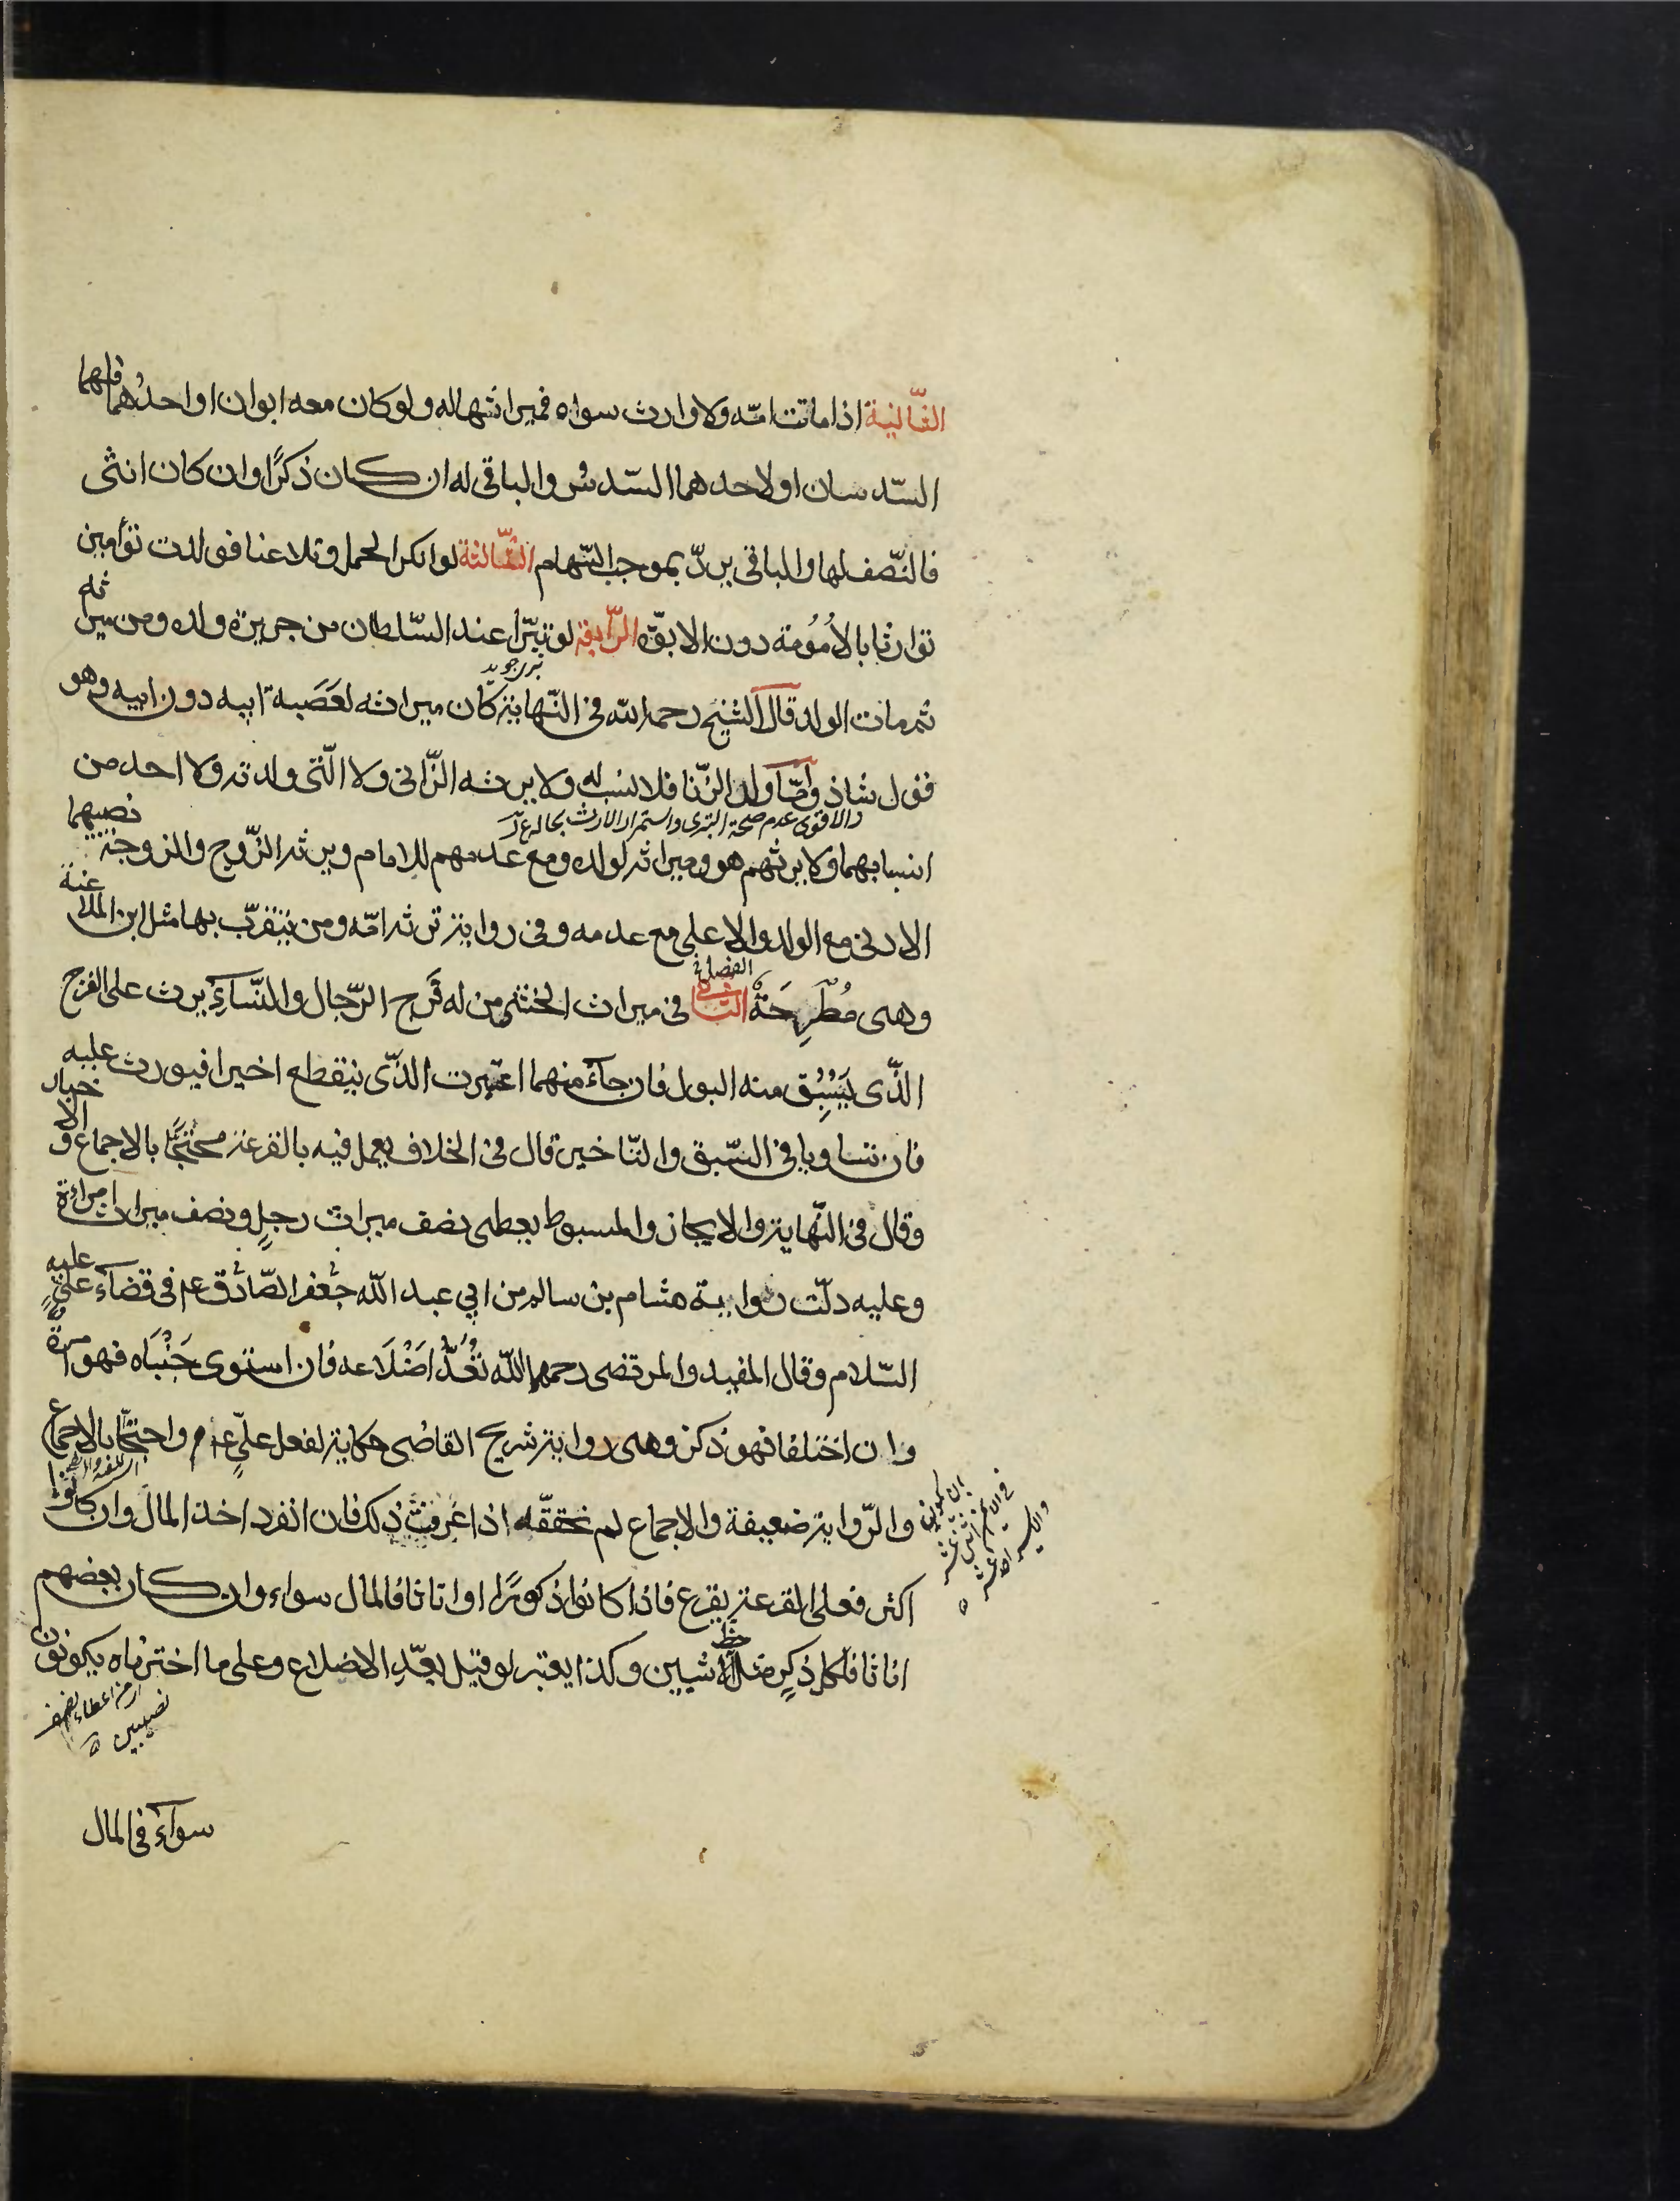 الثّانية اذا ماتت امّه ولا وارث سواه فميراثها له ولو كان معه ابوان او احدُهما فلهما
السّدسان او لاحدهما السّدسُ والباقى له ان كان ذكرًا وان كان انثى
فالنّصف لها والباقى يردّ بموجب السّهام الثّالثة لو انكر الحمل وتلاعنا فولدت توأمين
توارثا بالأمُومة دون الابوّه الرّابعة لو تبرّأ عند السّلطان من جريرة ولده ومن ميراثه
تبرى جويد
ثم مات الولد قال الشيخ رحمه الله فى النّهاية كان ميراثه لعَصَبة ابيه دون ابيه وهو
قول شاذ وامّا ولد الزّنا فلا نسب له ولا يرثه الزّانى ولا الّتى ولدته ولا احد من
والاقوى عدم صحة التبرى واستمرار الارث بحاله
انسابهما ولا يرثهم هو وميراثه لولده ومع عدمهم للامام ويرثه الزّوج والزوجة نصيبهما
الادنى مع الولد والاعلى مع عدمه وفى رواية ترثه امّه ومن يتقرّب بها مثل ابن الملاعنة
وهى مُطرَحَة الفصل الثانى فى ميراث الخنثى من له فَرج الرّجال والنّساء يرث على الفرج
الّذى يَسْبِق منه البول فان جآء منهما اعتبرت الّذى ينقطع اخيرا فيورث عليه
فان تساويا فى السّبق والتّاخير قال فى الخلاف يعمل فيه بالقرعة محتجًّا بالاجماع والاخبار
وقال فى النّهاية والايجاز والمبسوط يعطى نصف ميراث رجلٍ ونصف ميراث امراءة
وعليه دلّت رواية هشام بن سالم من ابي عبد الله جعفر الصّادق عم فى قضآء علىٍ عليه
السّلام وقال المفيد والمرتضى رحمهما الله تُعَدُّ اضْلَاعه فان استوى جَنْبَاه فهو امرة
وان اختلفا فهو ذكر وهى رواية شريح القاضى حكاية لفعل علىٍّ عم واحتجّا بالاجماع
والرّواية ضعيفة والاجماع لم نحققّه اذا عَرفتَ ذلك فان انفرد اخذ المال وان كانوا
اكثر فعلى القرعة يقرع فاذا كانوا ذكورًا او اناثا فالمال سواء وان كان بعضهم
اناثا فلكل ذكرٍ مثل حظ الانثيين وكذا يعتبر لو قيل بعدّ الاضلاع وعلى ما اخترناه يكونون
من اعطاء نصف
نصيبين
سوآء فى المال